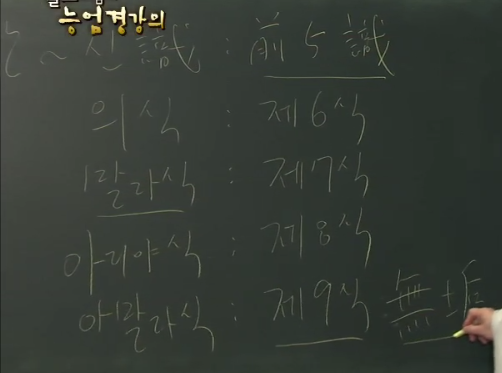 능엄경강의
~신識 : 前5識
의식 : 제6식
말라식 : 제7식
아리야식 : 제8식
아말라식 : 제9식 無垢